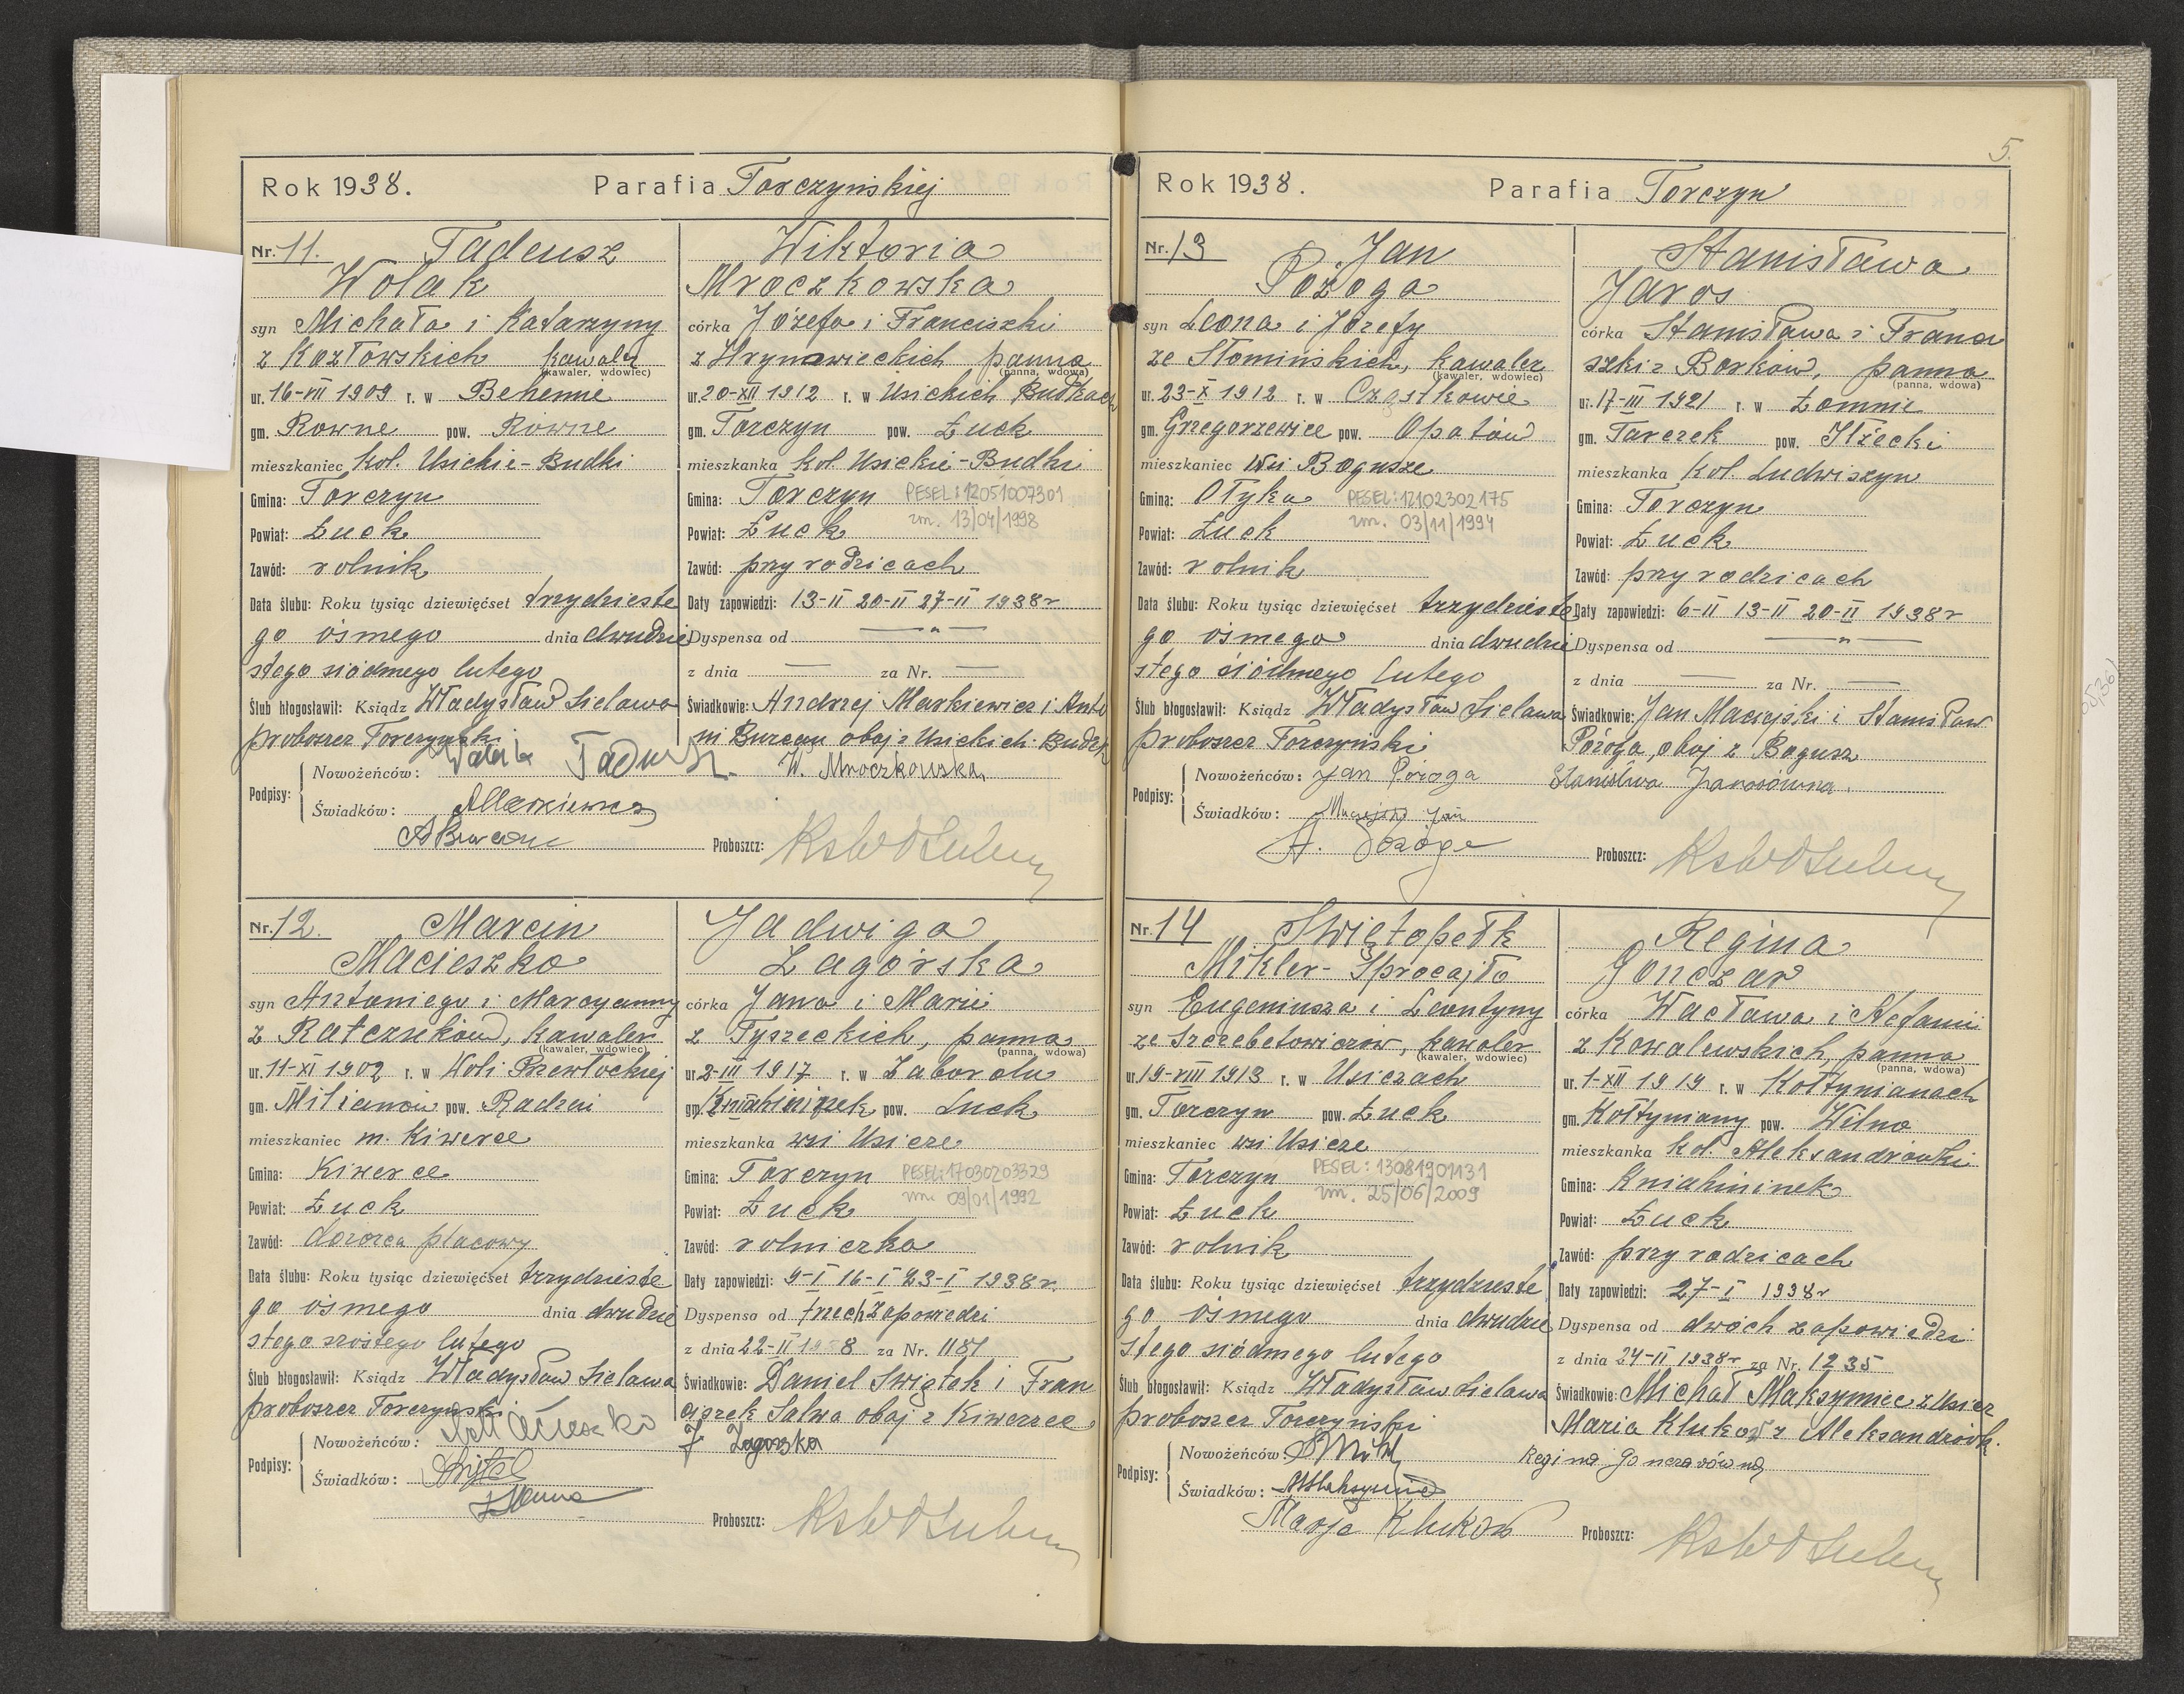 5.
Rok 1938. Parafia Torczyńskiej
Nr. 11. Tadeusz
Wolak
syn Michała i Katarzyny
z Kozłowskich kawaler
(kawaler, wdowiec)
ur. 16-VII 1909 r. w Behemie
gm. Rowne pow. Rowne
mieszkaniec Kol. Usickie-Budki
Gmina: Torczyn
Powiat: Łuck
Zawód: rolnik
Data ślubu: Roku tysiąc dziewięćset trzydzieste
go ósmego dnia dwudzie
stego siódmego lutego
Ślub błogosławił: Ksiądz Władysław Sielawa
proboszcz Torczyński
Wiktoria
Mroczkowska
córka Józefa i Franciszki
z Hrynawieckich panna
(panna, wdowa)
ur. 20-XII 1912 r. w Usickich Budkach
gm. Torczyn pow. Łuck
mieszkanka Kol Usickie-Budki
Gmina: Torczyn PESEL: 12051007301
Powiat: Łuck zm. 13/04/1998
Zawód: przy rodzicach
Daty zapowiedzi: 13-II 20-II 27-II 1938r
Dyspensa od — " —
z dnia — za Nr. —
Świadkowie: Andrzej Markiewicz i Anto
ni Burcan obaj z Usickich Budek
Podpisy:
Nowożeńców: Tadeusz W. Mroczkowska
Świadków: AMarkiewicz
ABurcan
Proboszcz:
Nr. 12. Marcin
Macieszko
syn Antoniego i Marcyanny
z Ratczuków, kawaler
(kawaler, wdowiec)
ur. 11-XI 1902 r. w Woli Przewłockiej
gm. Milianów pow. Radzin
mieszkaniec m. Kiwerce
Gmina: Kiwerce
Powiat: Łuck
Zawód: dozorca placowy
Data ślubu: Roku tysiąc dziewięćset trzydzieste
go ósmego dnia dwudzie
stego szóstego lutego
Ślub błogosławił: Ksiądz Władysław Sielawa
proboszcz Torczyński
Jadwiga
Zagórska
córka Jana i Marii
z Tyszeckich, panna
(panna, wdowa)
ur. 2-III 1917 r. w Zaborolu
gm. Kniahininek pow. Łuck
mieszkanka wsi Usicze
Gmina: Torczyn PESEL: 17030203329
Powiat: Łuck zm. 09/01/1992
Zawód: rolniczka
Daty zapowiedzi: 9-I 16-I 23-I 1938r.
Dyspensa od trzech zapowiedzi
z dnia 22-II 1938 za Nr. 1187
Świadkowie: Daniel Swiątek i Fran
ciszek Salwa obaj z Kiwerzec
Podpisy:
Nowożeńców: Macieszko J Zagorska
Świadków:
Proboszcz:
Rok 1938. Parafia Torczyn
Nr. 13 Jan
Pożoga
syn Leona i Józefy
ze Słomińskich, kawaler
(kawaler, wdowiec)
ur. 23-X 1912 r. w Cząstkowie
gm. Grzegorzewice pow. Opatów
mieszkaniec wsi Bogusze
Gmina: Ołyka PESEL: 12102302175
Powiat: Łuck zm. 03/11/1994
Zawód: rolnik
Data ślubu: Roku tysiąc dziewięćset trzydzieste
go ósmego dnia dwudzie
stego siódmego lutego
Ślub błogosławił: Ksiądz Władysław Sielawa
proboszcz Torczyński
Stanisława
Jaros
córka Stanisława i Franci
szki z Borków, panna
(panna, wdowa)
ur. 17-III 1921 r. w Łomnie
gm. Tarczek pow. Iłżecki
mieszkanka Kol. Ludwiszyn
Gmina: Torczyn
Powiat: Łuck
Zawód: przy rodzicach
Daty zapowiedzi: 6-II 13-II 20-II 1938r
Dyspensa od — " —
z dnia — za Nr. —
Świadkowie: Jan Maciejski i Stanisław
Pożoga, obaj z Bogusz
Podpisy:
Nowożeńców: Jan Pożoga Stanisława Jarosówna.
Świadków: Maciejski Jan
S. Pożoga
Proboszcz:
Nr. 14 Swiętopełk
Mikler-Sprocajło
syn Eugeniusza i Leontyny
ze Szczebetowiczów, kawaler
(kawaler, wdowiec)
ur. 19-VIII 1913 r. w Usiczach
gm. Torczyn pow. Łuck
mieszkaniec wsi Usicze
Gmina: Torczyn PESEL: 13081901131
Powiat: Łuck zm. 25/06/2009
Zawód: rolnik
Data ślubu: Roku tysiąc dziewięćset trzydzieste
go ósmego dnia dwudzie
stego siódmego lutego
Ślub błogosławił: Ksiądz Władysław Sielawa
proboszcz Torczyński
Regina
Gonczar
córka Wacława i Stefanii
z Kowalewskich, panna
(panna, wdowa)
ur. 1-XII 1919 r. w Kołtynianach
gm. Kołtyniany pow. Wilno
mieszkanka kol. Aleksandrówki
Gmina: Kniahininek
Powiat: Łuck
Zawód: przy rodzicach
Daty zapowiedzi: 27-I 1938r
Dyspensa od dwóch zapowiedzi
z dnia 24-II 1938r za Nr. 1235
Świadkowie: Michał Maksymiec z Usicz
Maria Klukow z Aleksandrówk.
Podpisy:
Nowożeńców: Regina Gonczarówna
Świadków:
Marja Klukow
Proboszcz: